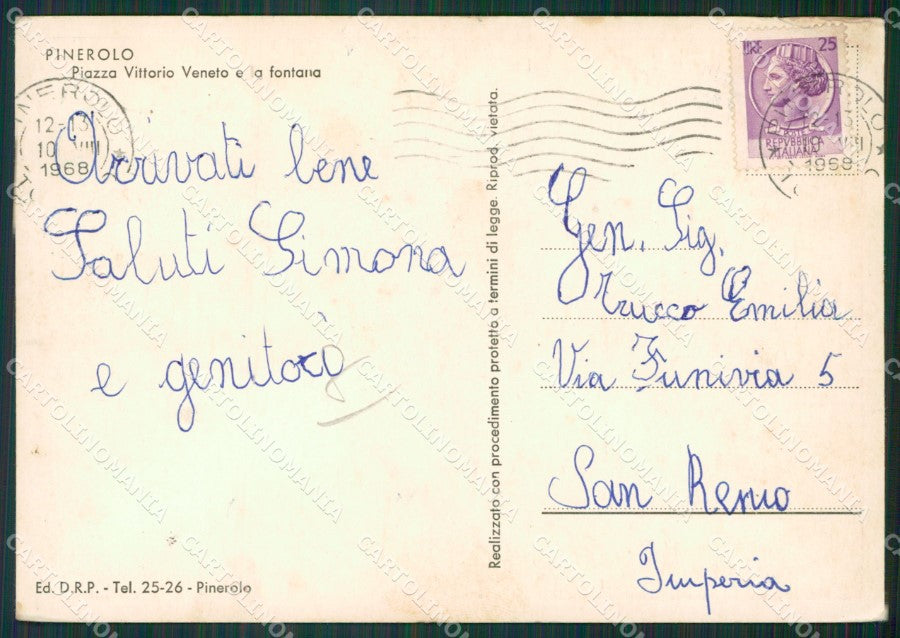 PINEROLO
Piazza Vittorio Veneto e la fontana
Arrivati bene
Saluti Simona
e genitori
Ed. D.R.P. - Tel. 25-26 - Pinerolo
Realizzato con procedimento protetto a termini di legge. Riprod. vietata.
PINEROLO
12-13
1968
LIRE 25
REPVBBLICA
ITALIANA
1968
Gen. Sig.
Trucco Emilia
Via Funivia 5
San Remo
Imperia
CARTOLINOMANIA